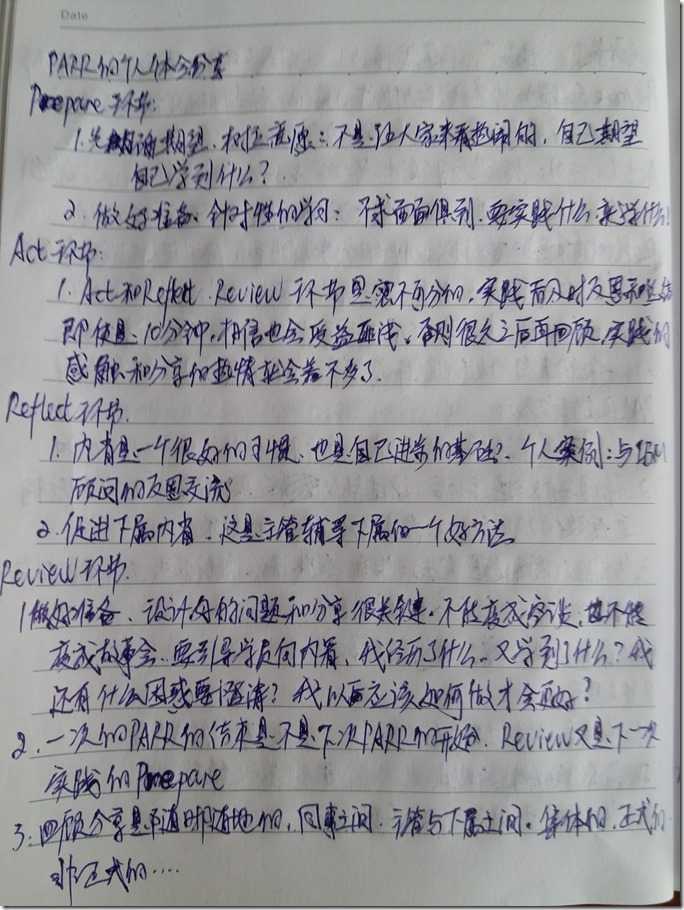 Date
PARR的个人体会分享
Prepare环节：
1.先沟通期望、构筑意愿：不是让大家来看热闹的，自己期望
自己学到什么？
2.做好准备、针对性的学习：不求面面俱到、要实践什么来学什么！
Act环节：
1.Act和Reflect、Review环节是密不可分的，实践后及时反思和总结
即使是10分钟，相信也会受益匪浅。否则很久之后再回顾，实践的
感触和分享的热情就会差不多了.
Reflect环节.
1.内省是一个很好的习惯、也是自己进步的基础？个人案例：与IBM
顾问的反思交流
2.促进下属内省、这是主管辅导下属的一个好方法
Review环节.
1做好准备、设计好的问题和分享很关键。不能变成空谈，也不能
变成故事会、要引导学员向内看，我经历了什么、又学到了什么？我
还有什么困惑要澄清？我以后应该如何做才会更好？
2.一次的PARR的结束是不是下次PARR的开始、Review又是下一次
实践的Prepare
3.回顾分享是随时随地的，同事之间、主管与下属之间。集体的，正式的
非正式的....